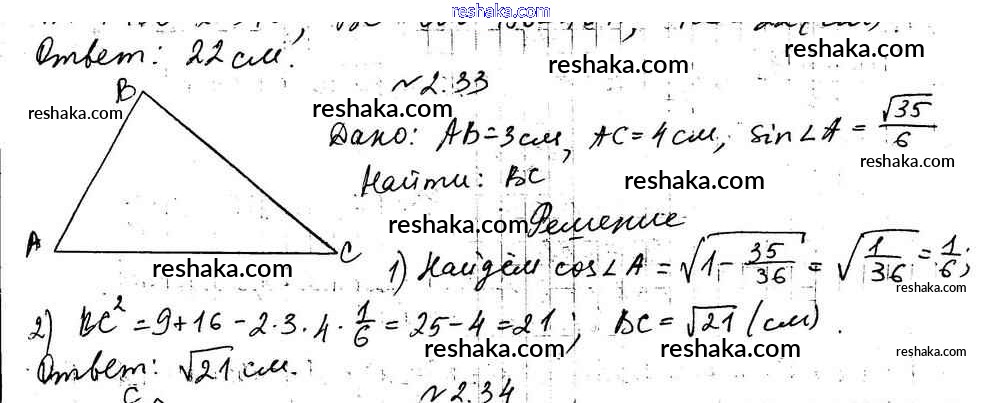 reshaka.com
Ответ: 22 см.
№2.33
reshaka.com
B
reshaka.com
reshaka.com
Дано: AB=3см, AC=4см, sin∠A = √35/6
reshaka.com
Найти: BC
reshaka.com
reshaka.com
Решение
A
C
reshaka.com
1) Найдём cos∠A = √(1 - 35/36) = √(1/36) = 1/6;
reshaka.com
2) BC² = 9+16 - 2·3·4·1/6 = 25-4 = 21; BC = √21 (см).
reshaka.com
reshaka.com
reshaka.com
Ответ: √21 см.
reshaka.com
reshaka.com
C
№2.34